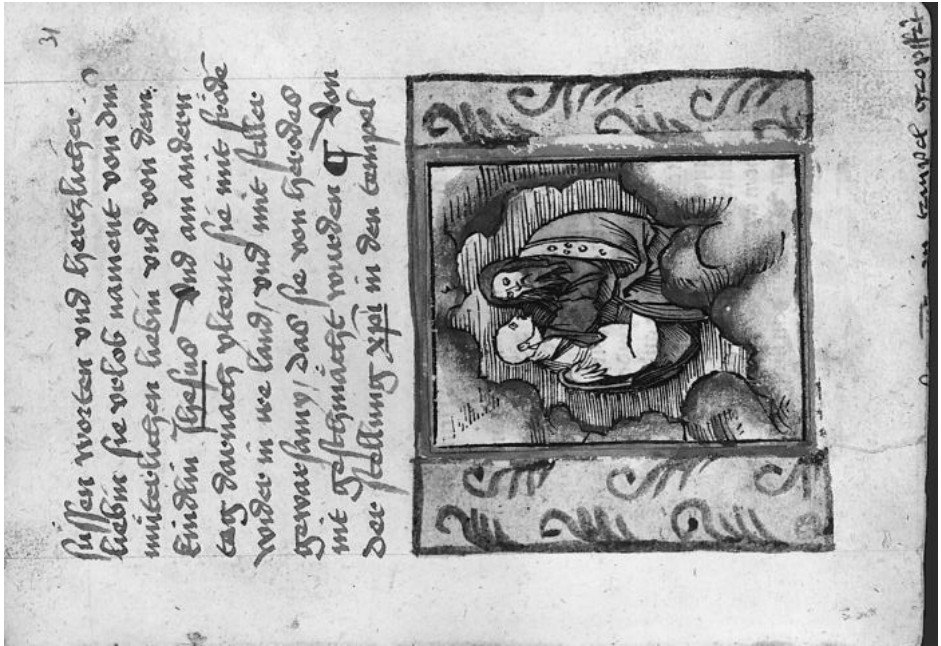 31
süssen worten vnd hertzlicher
liebin sie vrlob nament von dem
müterlichen hertzen liebin vnd von dem
kindlin Jhesus Vnd am andern
tag darnach yltent sie mit fröde
wider in ire land / vnd mit stiller
gewarsamy / das sie von herodes
nit geschmächt wurden ¶ Von
der stellung xpi in den tempel
in tempel geopffret